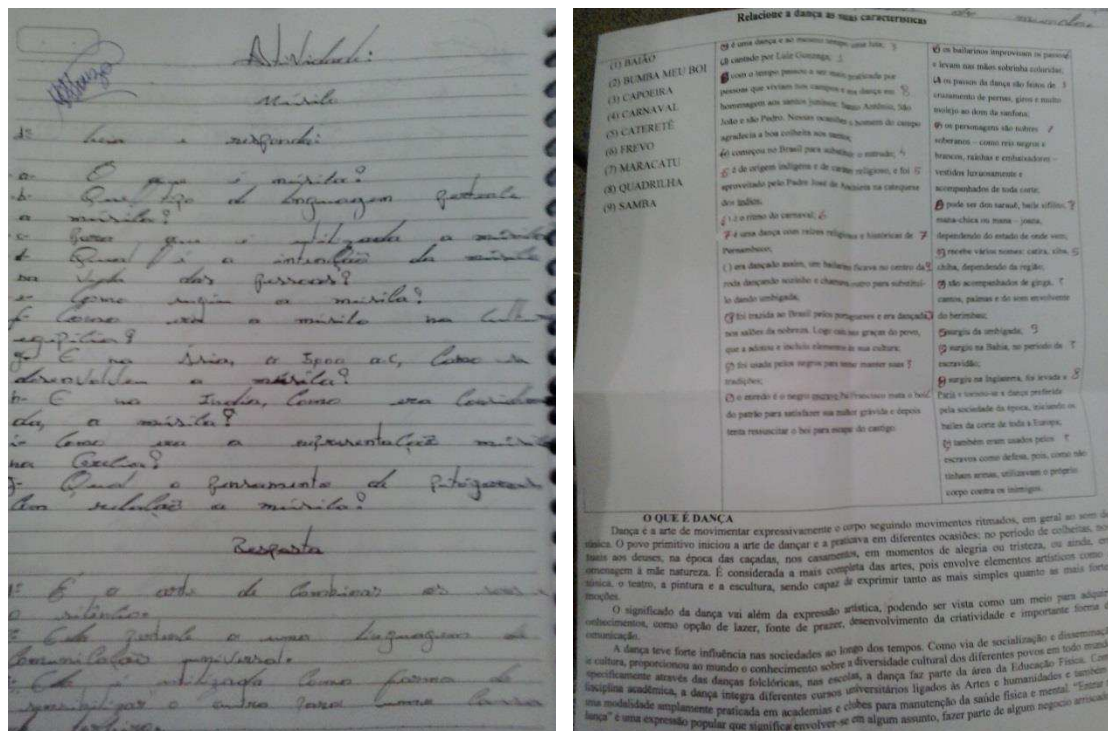 Atividade:
Música
1º Leia e responda:
a- O que é música?
b- Que tipo de linguagem pertence
a música?
c- Para que é utilizada a música
d- Qual é a intenção da música
na vida das pessoas?
e- Como surgiu a música?
f- Como era a música na Cultura
egípicia?
g- E na Ásia, a 3000 a.C, Como se
a música?
h- E na India, Como era
da, a música?
i- Como era a representação
na
j- Qual o pensamento de
em relação a música?
Resposta
É a arte de Combinar os sons e
o silêncio.
Ela pertence a uma linguagem de
Comunicação universal.
Ela é utilizada Como forma de
sensibilizar o outro para uma Causa
Relacione a dança as suas características
(1) BAIÃO
(2) BUMBA MEU BOI
(3) CAPOEIRA
(4) CARNAVAL
(5) CATERETÊ
(6) FREVO
(7) MARACATU
(8) QUADRILHA
(9) SAMBA
é uma dança e ao mesmo tempo uma luta;
cantado por Luiz Gonzaga;
com o tempo passou a ser mais praticada por
pessoas que viviam nos campos e era dança em 8
homenagem aos santos juninos: Santo Antônio, São
João e são Pedro. Nessas ocasiões o homem do campo
agradecia a boa colheita aos santos;
começou no Brasil para substituir o entrudo;
é de origem indígena e de caráter religioso, e foi 5
aproveitado pelo Padre José de Anchieta na catequese
dos índios.
é o ritmo do carnaval; 6
7 é uma dança com raízes religiosa e históricas de 7
Pernambuco;
( ) era dançado assim, um bailarino ficava no centro da 9
roda dançando sozinho e chamava outro para substituí-
lo dando umbigada;
foi trazida ao Brasil pelos portugueses e era dançada
nos salões da nobreza. Logo caiu nas graças do povo,
que a adotou e incluiu elementos de sua cultura;
foi usada pelos negros para manter suas
tradições;
o enredo é o negro Francisco mata o boi
do patrão para satisfazer sua mulher grávida e depois
tenta ressuscitar o boi para escapar do castigo.
os bailarinos improvisam os passos
e levam nas mãos sobrinha coloridas;
os passos da dança são feitos de
cruzamento de pernas, giros e muito
molejo ao dom da sanfona;
os personagens são nobres
soberanos – como reis negros e
brancos, rainhas e embaixadores –
vestidos luxuosamente e
acompanhados de toda corte;
pode ser don sarauê, baile sifilito,
mana-chica ou mana – joana,
dependendo do estado de onde vem;
recebe vários nomes: catira, xiba, 5
chiba, dependendo da região;
são acompanhados de ginga,
cantos, palmas e do som envolvente
do berimbau;
surgiu da umbigada; 9
surgiu na Bahia, no período da
escravidão;
surgiu na Inglaterra, foi levada a 8
Paris e tornou-se a dança preferida
pela sociedade da época, iniciando os
bailes da corte de toda a Europa;
também eram usados pelos
escravos como defesa, pois, como não
tinham armas, utilizavam o próprio
corpo contra os inimigos.
O QUE É DANÇA
Dança é a arte de movimentar expressivamente o corpo seguindo movimentos ritmados, em geral ao som de
música. O povo primitivo iniciou a arte de dançar e a praticava em diferentes ocasiões: no período de colheitas, nos
rituais aos deuses, na época das caçadas, nos casamentos, em momentos de alegria ou tristeza, ou ainda, em
omenagem à mãe natureza. É considerada a mais completa das artes, pois envolve elementos artísticos como a
música, o teatro, a pintura e a escultura, sendo capaz de exprimir tanto as mais simples quanto as mais fortes
emoções.
O significado da dança vai além da expressão artística, podendo ser vista como um meio para adquirir
conhecimentos, como opção de lazer, fonte de prazer, desenvolvimento da criatividade e importante forma de
comunicação.
A dança teve forte influência nas sociedades ao longo dos tempos. Como via de socialização e disseminação
de cultura, proporcionou ao mundo o conhecimento sobre a diversidade cultural dos diferentes povos em todo mundo
especificamente através das danças folclóricas, nas escolas, a dança faz parte da área da Educação Física. Como
disciplina acadêmica, a dança integra diferentes cursos universitários ligados às Artes e humanidades e também
uma modalidade amplamente praticada em academias e clubes para manutenção da saúde física e mental. "Entrar
dança" é uma expressão popular que significa envolver-se em algum assunto, fazer parte de algum negocio arriscado